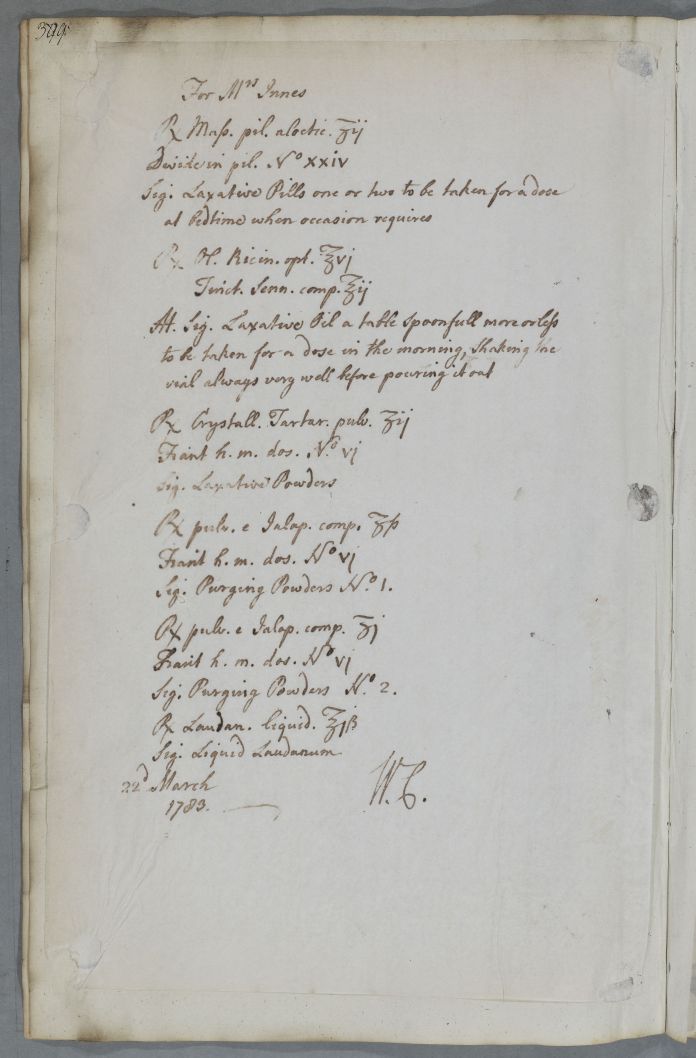 399
For Mrs Innes
℞ Mass. pil. aloetic. ʒij
Divide in pil. No xxiv
Sig. Laxative Pills one or two to be taken for a dose
at bedtime when occasion requires
℞ Ol. Ricin. opt. ℥vj
Tinct. Senn. comp. ℥ij
M. Sig. Laxative Oil a table spoonfull more or less
to be taken for a dose in the morning, shaking the
vial always very well before pouring it out
℞ Crystall. Tartar. pulv. ʒij
Fiant h. m. dos. No vj
Sig. Laxative Powders
℞ pulv. e Jalap. comp. ʒß
Fiant h. m. dos. No vj
Sig. Purging Powders No. 1.
℞ pulv. e Jalap. comp. ʒj
Fiant h. m. dos. No vj
Sig. Purging Powders No. 2.
℞ Laudan. liquid. ℥jß
Sig. Liquid Laudanum
22d March
1783.
W. C.